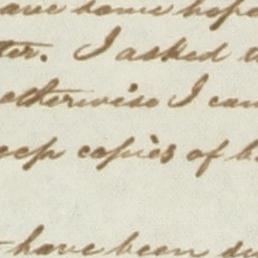 have some hope
ter. I asked
otherwise I can
keep copies of
have been